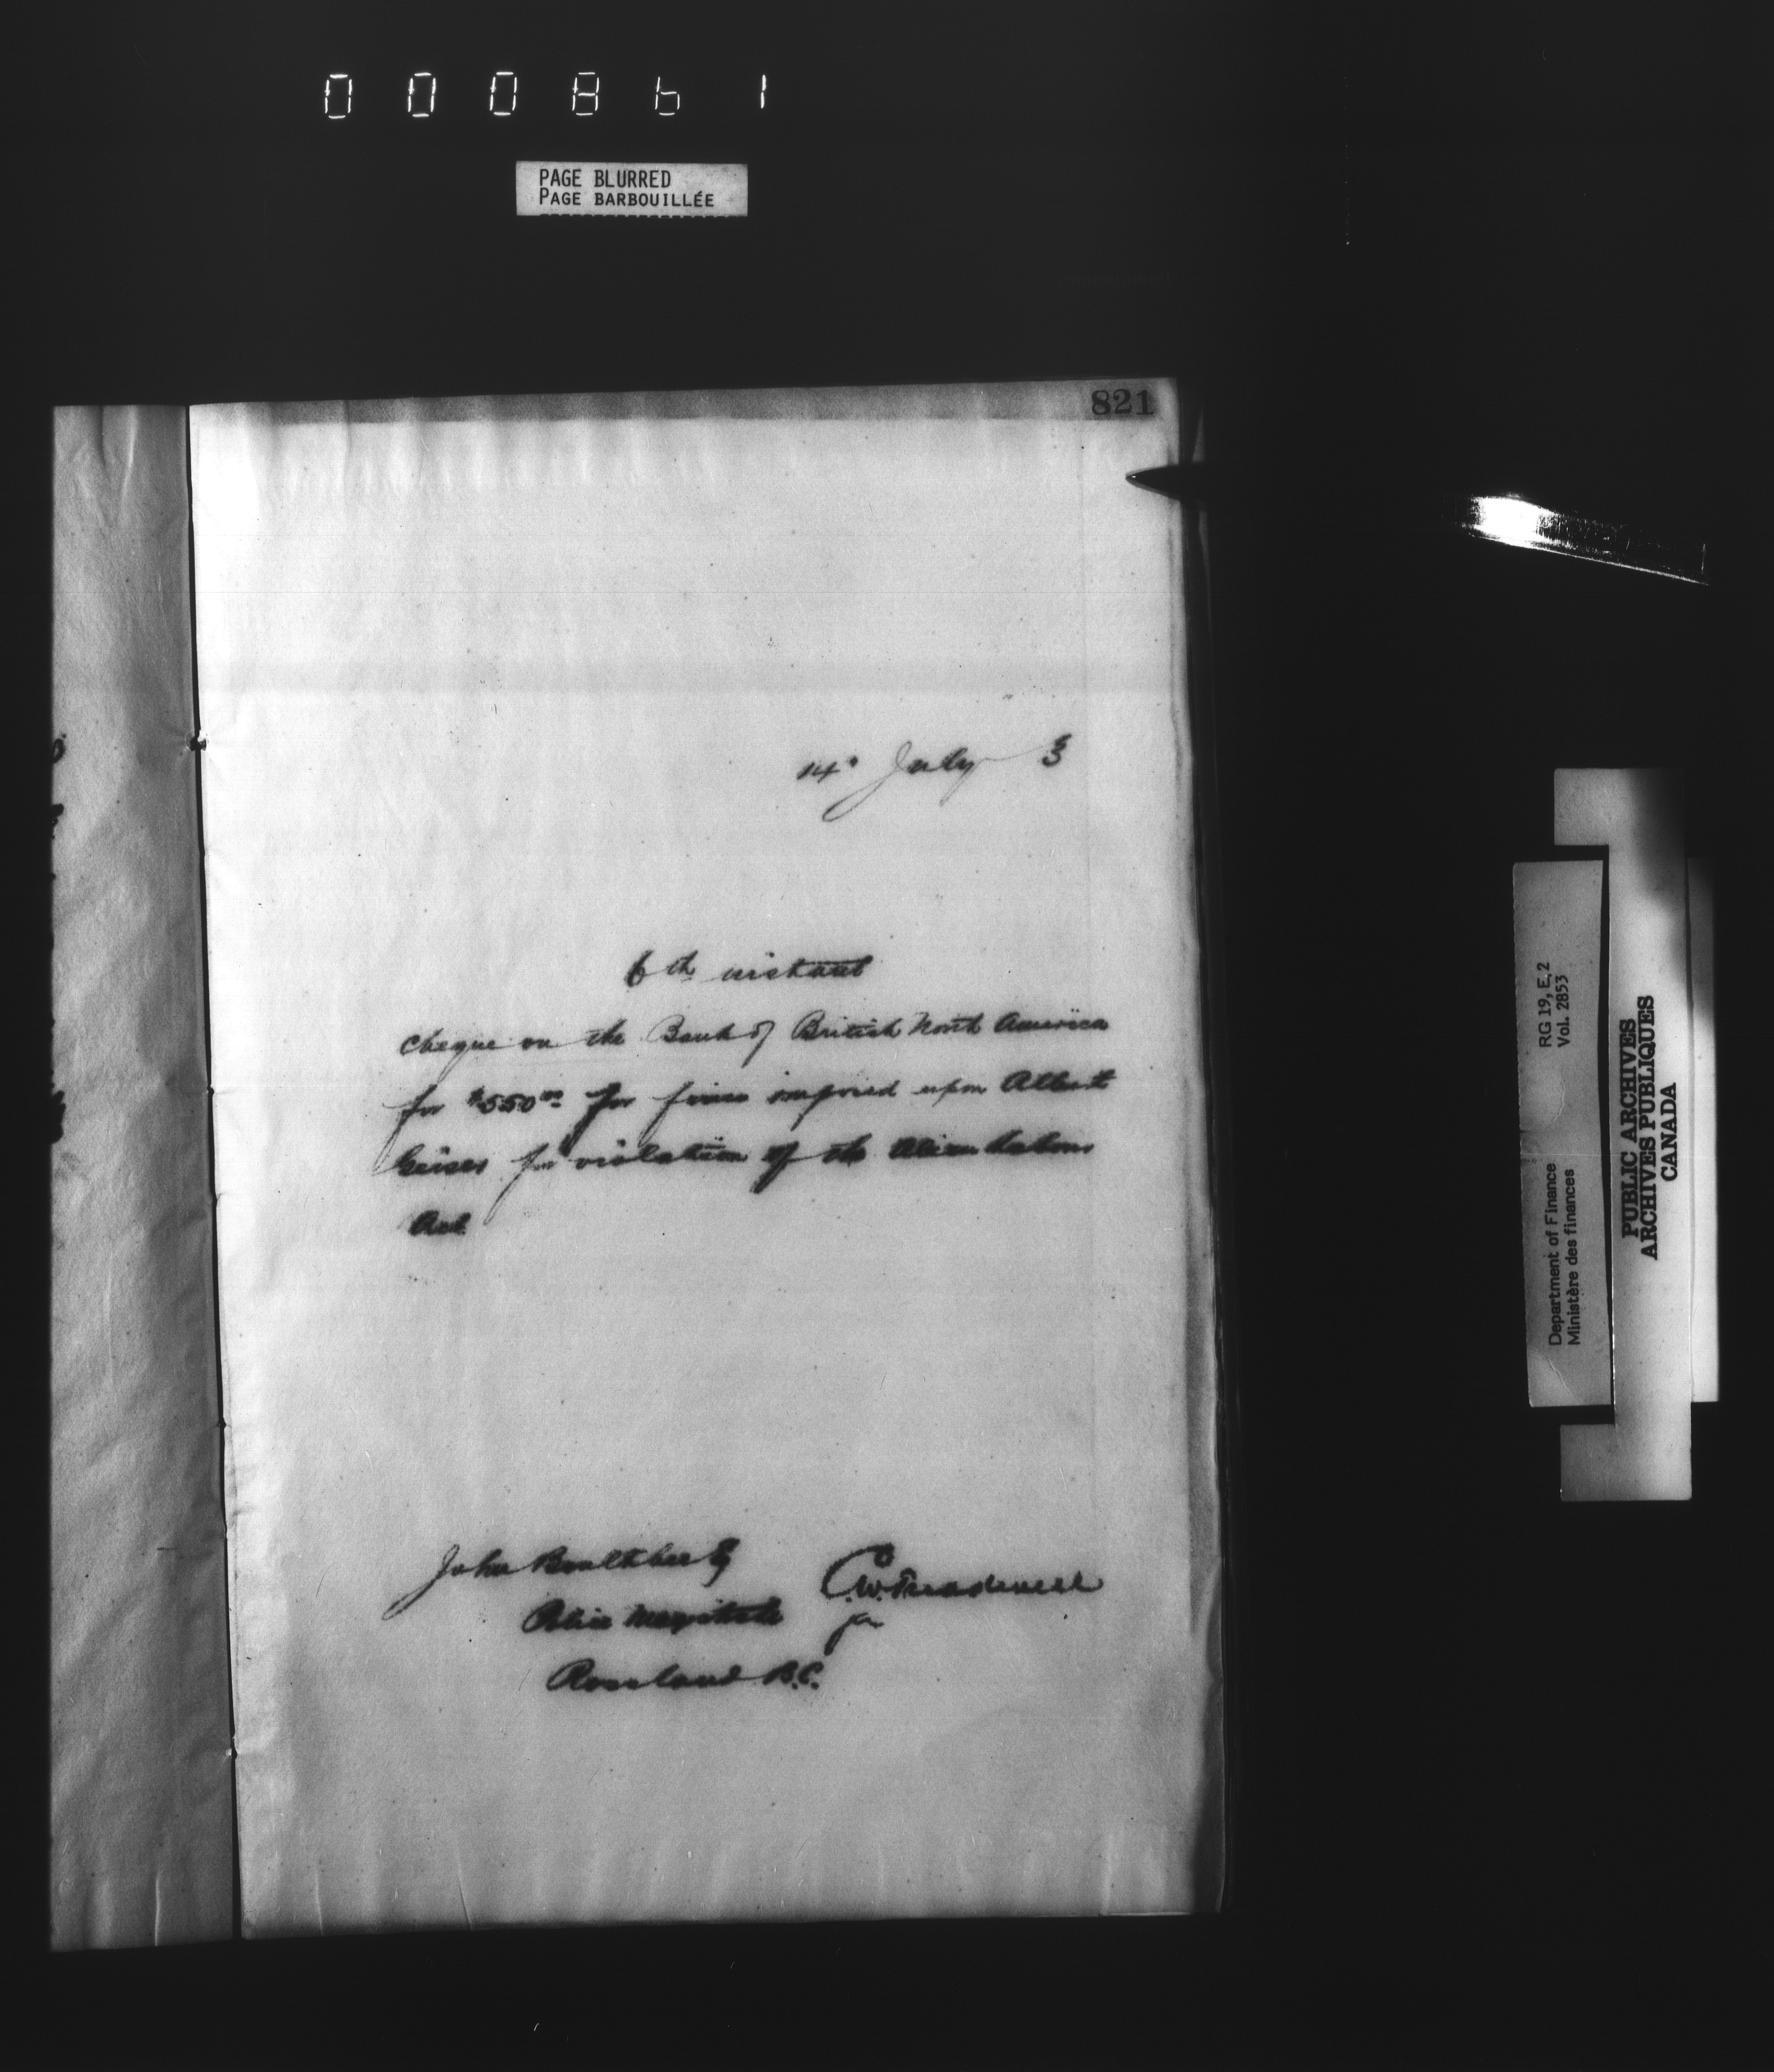 000861
PAGE BLURRED
PAGE BARBOUILLÉE
821
14" July 3
6th instant
cheque on the Bank of British North America
for $550.00 for fines imposed upon Albert
Geiser for violation of the Alien Labour
Act.
John Boultbee Esq
Police Magistrate
Rossland B.C.
C.W. Treadwell
for
RG 19, E, 2
Vol. 2853
Department of Finance
Ministère des finances
PUBLIC ARCHIVES
ARCHIVES PUBLIQUES
CANADA